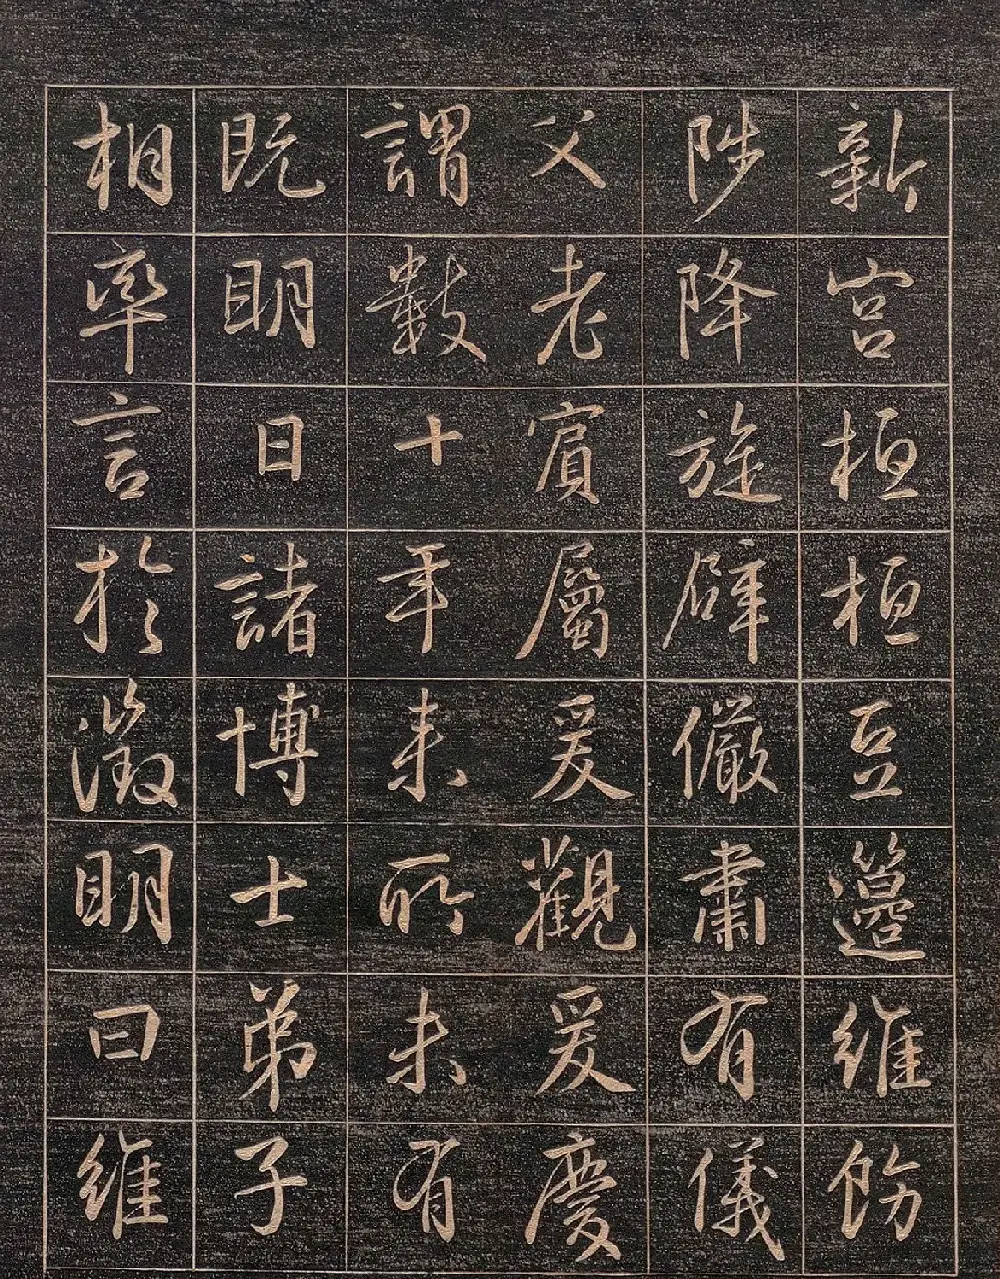 新宮桓桓豆籩維飭
陟降旋辟儼肅有儀
父老賓屬爰觀爰慶
謂數十年来所未有
既明日諸博士弟子
相率言於澂明曰維